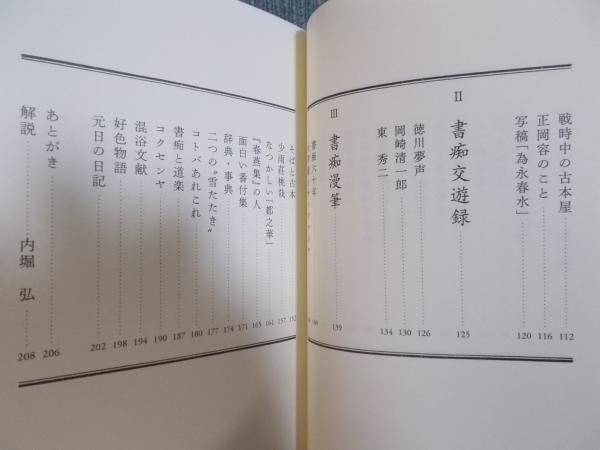 戦時中の古本屋……112
正岡容のこと……116
写稿「為永春水」……120
II 書痴交遊録……125
徳川夢声……126
岡崎清一郎……130
東 秀二……134
III 書痴漫筆……139
書痴六十年
そばと古本……152
少雨荘桃哉……157
なつかしい「都之華」……161
『春燕集』の人……165
面白い番付集……171
辞典・事典……174
二つの〝雪たたき〟……177
コトバあれこれ……180
書痴と道楽……187
コクセンヤ……190
混浴文献……194
好色物語……198
元日の日記……202
あとがき……206
解説……内堀 弘……208